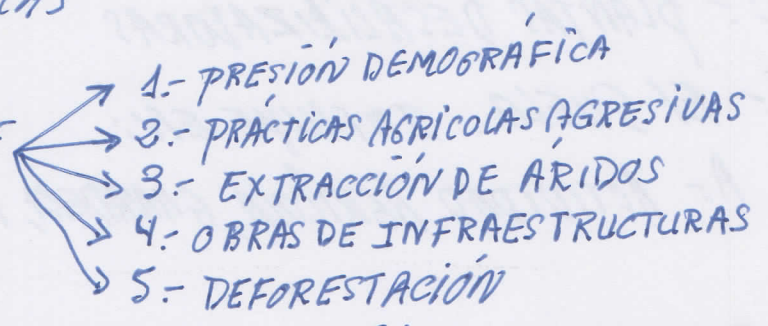 1.- PRESIÓN DEMOGRÁFICA
2.- PRÁCTICAS AGRICOLAS AGRESIVAS
3.- EXTRACCIÓN DE ÁRIDOS
4.- OBRAS DE INFRAESTRUCTURAS
5.- DEFORESTACIÓN